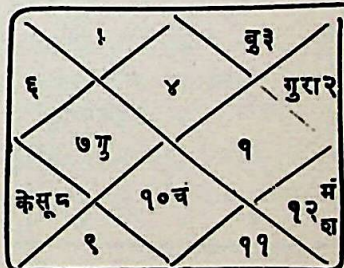 बु३
६ ४ गुरा२
७गु १
केसू८ १०चं १२ मं
श
९ ११